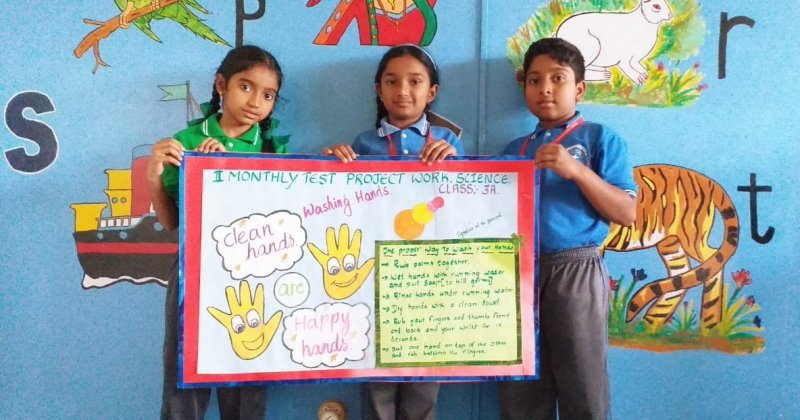 p
r
s
t
II MONTHLY TEST PROJECT WORK. SCIENCE.
CLASS:- 3A.
Washing Hands.
clean
hands.
are
Happy
hands
The proper way to wash your Hands
→ Rub palms together.
→ Wet hands with running water
and put soap to kill germs
→ Rinse hands under running water
→ Dry hands with a clean towel
→ Rub your fingers and thumb front
and back and your wrist for
seconds.
→ Put one hand on top of the other
and rub between fingers.